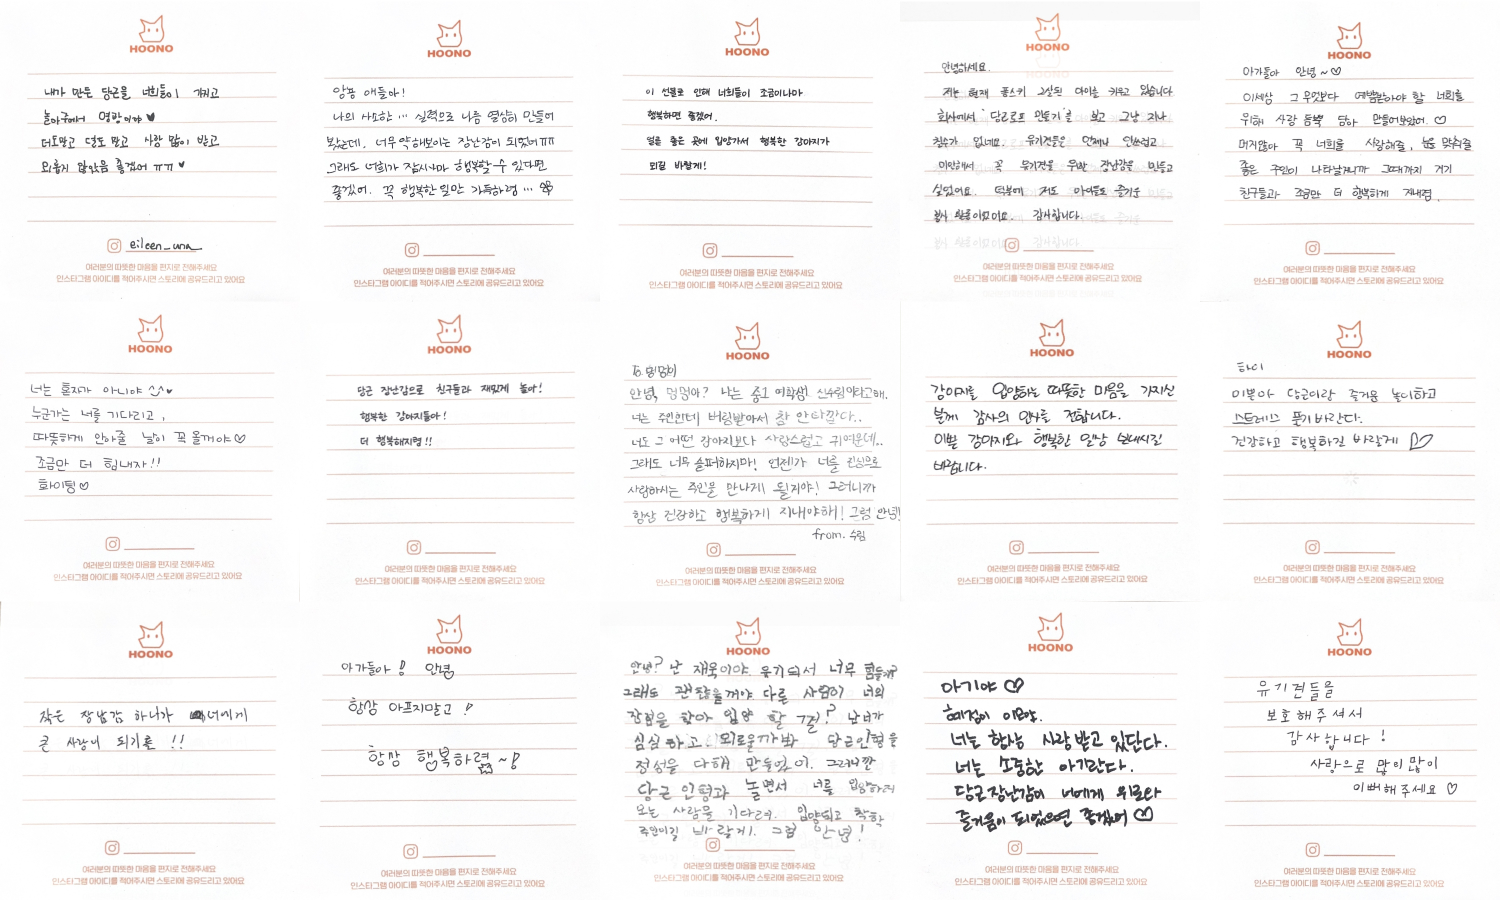 HOONO
내가 만든 당근을 너희들이 가지고
놀아주어서 영광이야 ♥
더도말고 덜도 말고 사랑 많이 받고
외롭지 않았음 좋겠어 ㅠㅠ ♥
eileen_una_
여러분의 따뜻한 마음을 편지로 전해주세요
인스타그램 아이디를 적어주시면 스토리에 공유드리고 있어요
HOONO
앙뇽 애들아!
나의 사소한 … 실력으로 나름 열심히 만들어
봤는데. 너무 약해보이는 장난감이 되었어ㅠㅠ
그래도 너희가 잠시나마 행복할 수 있다면
좋겠어. 꼭 행복한 일만 가득하렴 …
여러분의 따뜻한 마음을 편지로 전해주세요
인스타그램 아이디를 적어주시면 스토리에 공유드리고 있어요
HOONO
이 선물로 인해 너희들이 조금이나마
행복하면 좋겠어.
얼른 좋은 곳에 입양가서 행복한 강아지가
되길 바랄게!
여러분의 따뜻한 마음을 편지로 전해주세요
인스타그램 아이디를 적어주시면 스토리에 공유드리고 있어요
HOONO
안녕하세요.
저는 현재 품스키 2살된 아이를 키우고 있습니다
회사에서 '당근로프 만들기'를 보고 그냥 지나
칠수가 없네요. 유기견들은 언제나 안쓰럽고
미안해서 꼭 유기견을 위한 장난감을 만들고
싶었어요. 덕분에 저도 아이들도 즐거운
봉사 활동이었어요. 감사합니다.
여러분의 따뜻한 마음을 편지로 전해주세요
인스타그램 아이디를 적어주시면 스토리에 공유드리고 있어요
HOONO
아가들아 안녕~♡
이세상 그 무엇보다 예쁨받아야 할 너희를
위해 사랑 듬뿍 담아 만들어보았어. ♡
머지않아 꼭 너희를 사랑해줄, 눈 맞춰줄
좋은 주인이 나타날거니까 그때까지 거기
친구들과 조금만 더 행복하게 지내렴.
여러분의 따뜻한 마음을 편지로 전해주세요
인스타그램 아이디를 적어주시면 스토리에 공유드리고 있어요
HOONO
너는 혼자가 아니야 ^^♥
누군가는 너를 기다리고,
따뜻하게 안아줄 날이 꼭 올꺼야♡
조금만 더 힘내자!!
화이팅♡
여러분의 따뜻한 마음을 편지로 전해주세요
인스타그램 아이디를 적어주시면 스토리에 공유드리고 있어요
HOONO
당근 장난감으로 친구들과 재밌게 놀아!
행복한 강아지들아!
더 행복해지렴!!
여러분의 따뜻한 마음을 편지로 전해주세요
인스타그램 아이디를 적어주시면 스토리에 공유드리고 있어요
HOONO
To. 멍멍이
안녕, 멍멍아? 나는 중1 여학생 신수림이라고해.
너는 주인한테 버림받아서 참 안타깝다..
너도 그 어떤 강아지보다 사랑스럽고 귀여운데..
그래도 너무 슬퍼하지마! 언젠가 너를 진심으로
사랑하시는 주인을 만나게 될거야! 그러니까
항상 건강하고 행복하게 지내야해! 그럼 안녕!
from. 수림
여러분의 따뜻한 마음을 편지로 전해주세요
인스타그램 아이디를 적어주시면 스토리에 공유드리고 있어요
HOONO
강아지를 입양하는 따뜻한 마음을 가지신
분께 감사의 인사를 전합니다.
이쁜 강아지와 행복한 일상 보내시길
바랍니다.
여러분의 따뜻한 마음을 편지로 전해주세요
인스타그램 아이디를 적어주시면 스토리에 공유드리고 있어요
HOONO
하이
이쁜아 당근이랑 즐거운 놀이하고
스트레스 풀기바란다.
건강하고 행복하길 바랄게
여러분의 따뜻한 마음을 편지로 전해주세요
인스타그램 아이디를 적어주시면 스토리에 공유드리고 있어요
HOONO
작은 장난감 하나가 너에게
큰 사랑이 되기를 !!
여러분의 따뜻한 마음을 편지로 전해주세요
인스타그램 아이디를 적어주시면 스토리에 공유드리고 있어요
HOONO
아가들아! 안녕
항상 아프지말고!
항상 행복하렴~!
여러분의 따뜻한 마음을 편지로 전해주세요
인스타그램 아이디를 적어주시면 스토리에 공유드리고 있어요
HOONO
안녕? 난 재욱이야. 유기되서 너무 힘들지?
그래도 괜찮을꺼야 다른 사람이 너의
장점을 찾아 입양 할 걸! 난 너가
심심하고 외로울까봐 당근인형을
정성을 다해 만들었어. 그러니깐
당근 인형과 놀면서 너를 입양하러
오는 사람을 기다려. 입양되고 착한
주인이길 바랄게. 그럼 안녕!
여러분의 따뜻한 마음을 편지로 전해주세요
인스타그램 아이디를 적어주시면 스토리에 공유드리고 있어요
HOONO
아기야 ♡
혜정이 이모야.
너는 항상 사랑받고 있단다.
너는 소중한 아기란다.
당근장난감이 너에게 위로와
즐거움이 되었으면 좋겠어 ♡
여러분의 따뜻한 마음을 편지로 전해주세요
인스타그램 아이디를 적어주시면 스토리에 공유드리고 있어요
HOONO
유기견들을
보호해주셔서
감사합니다!
사랑으로 많이많이
이뻐해주세요 ♡
여러분의 따뜻한 마음을 편지로 전해주세요
인스타그램 아이디를 적어주시면 스토리에 공유드리고 있어요